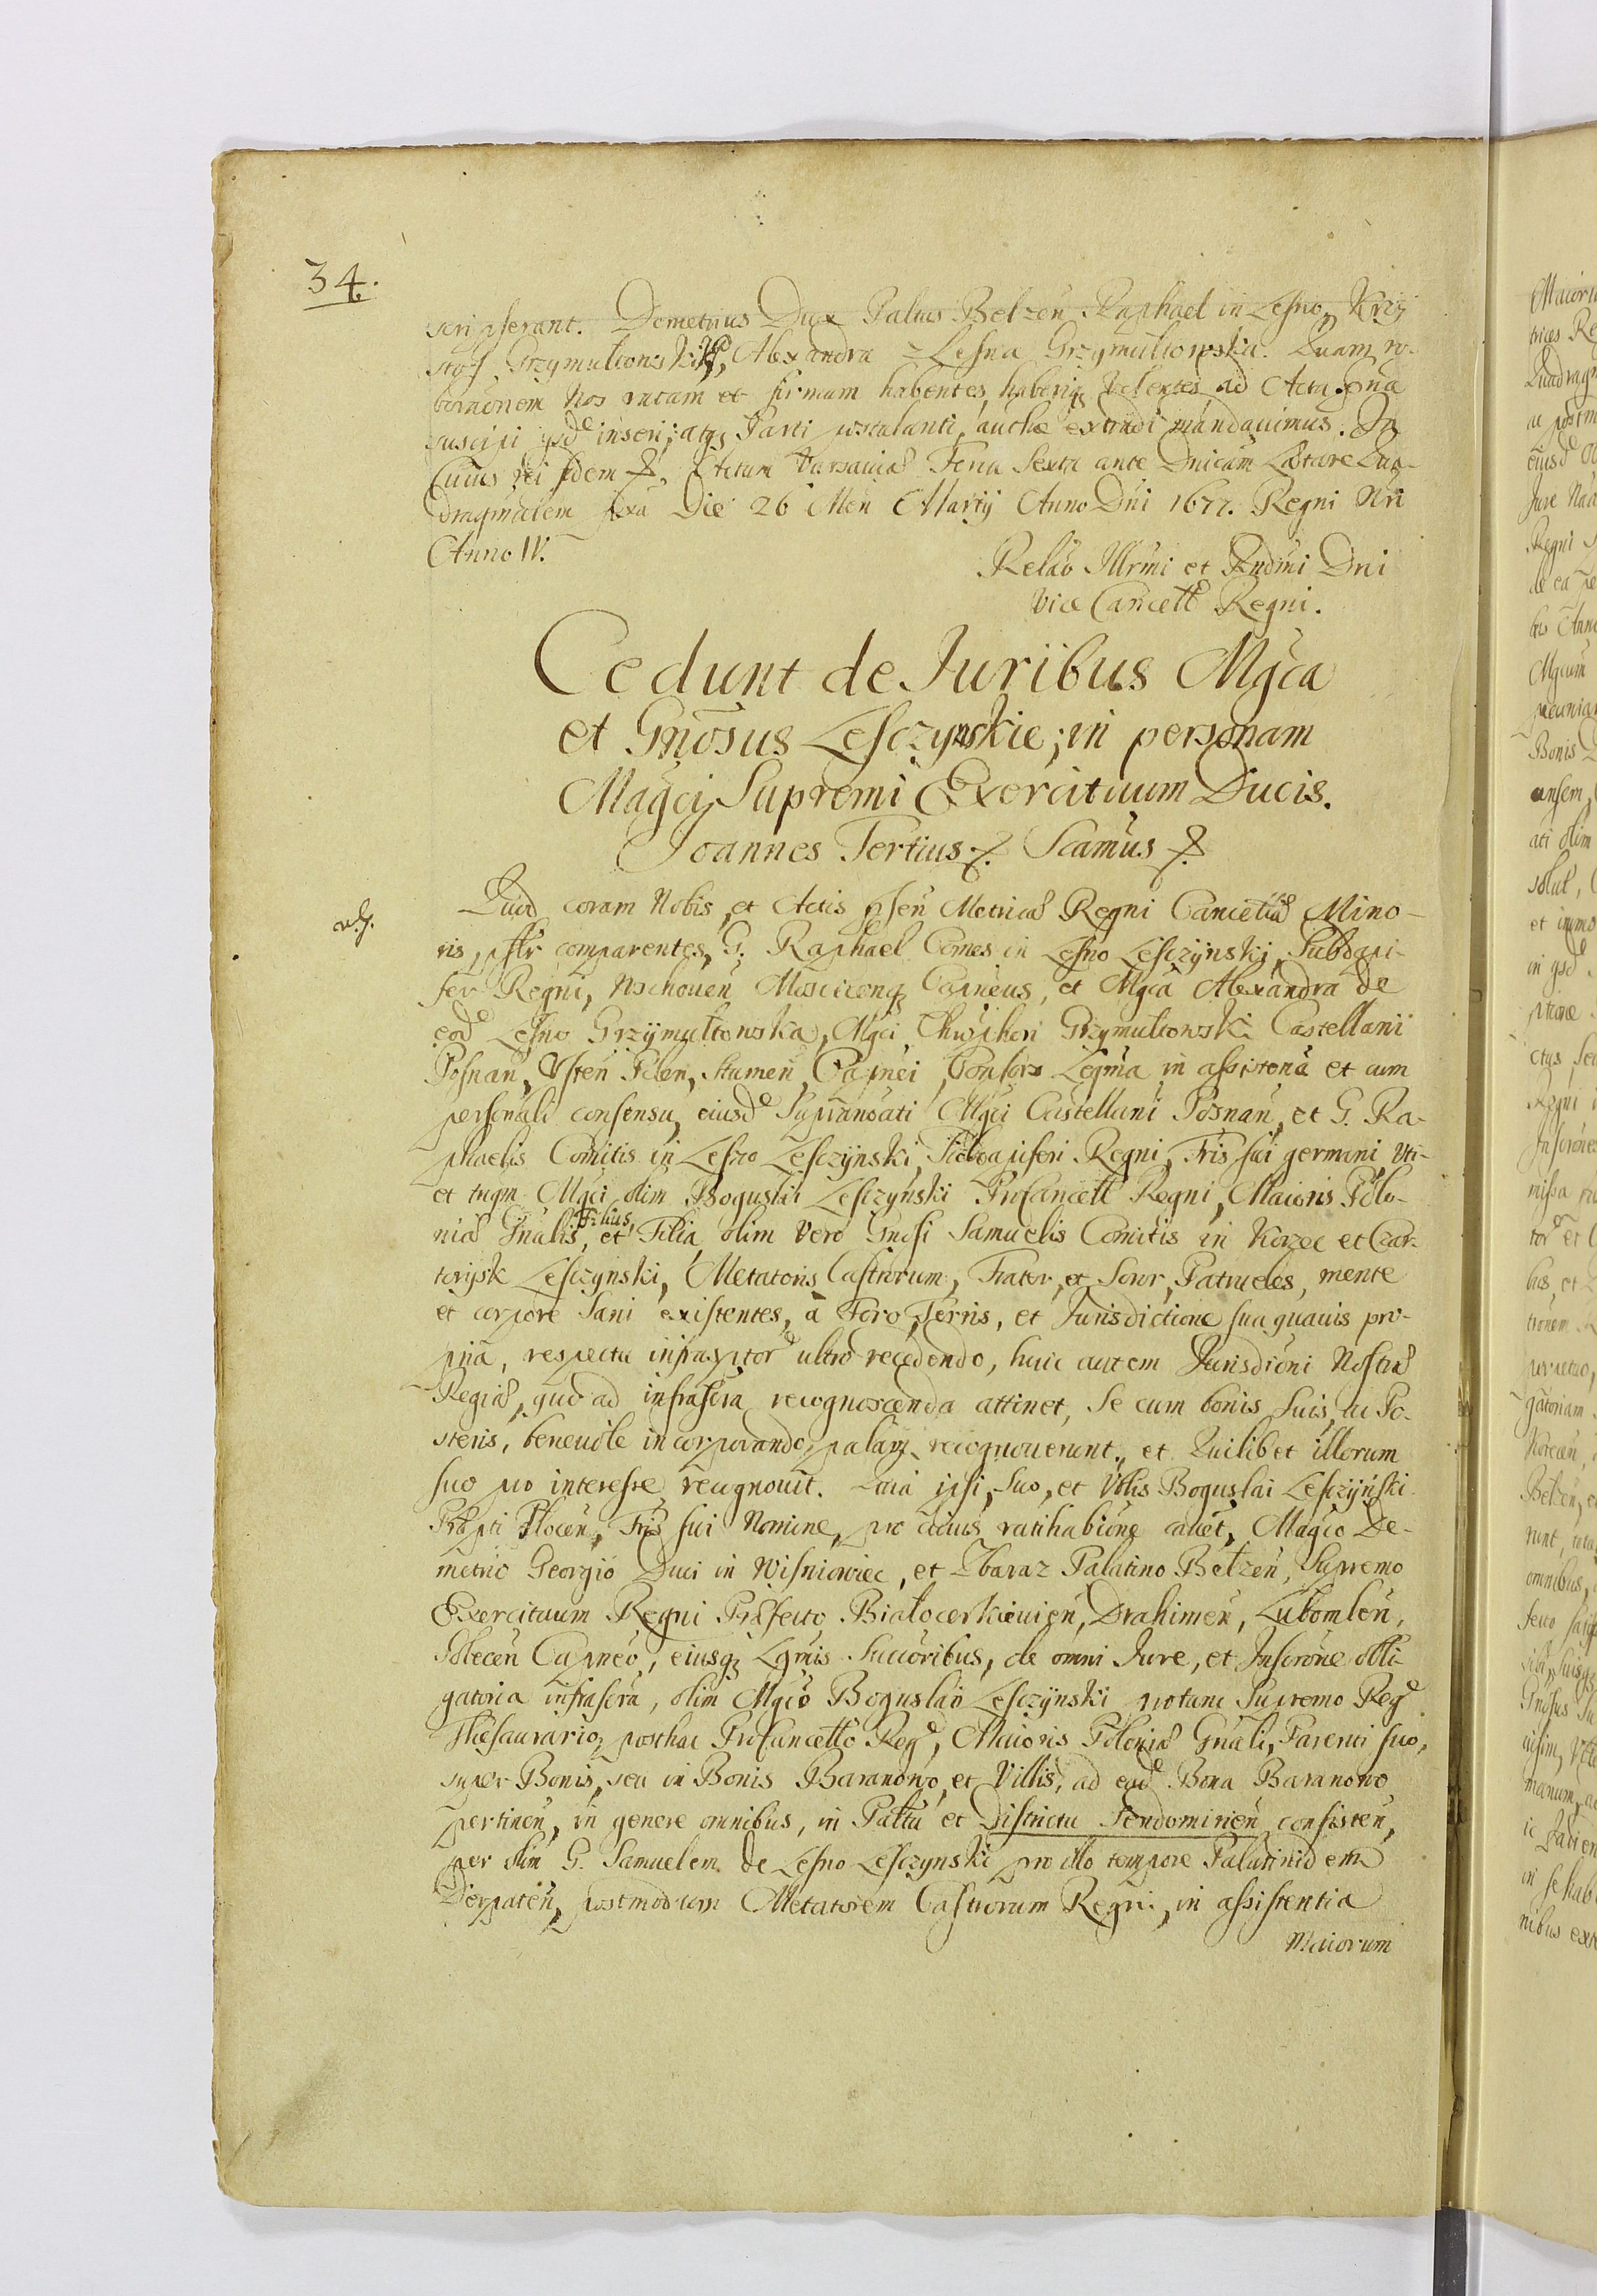 34.
scripserant. Demetrius Dux Paltus Belzen Raphael in Lesno, Krzy
stof Grzymultowski, Alexandra z Lesna Grzymultowska. Quam ro-
borationem Nos ratam et firmam habentes, haberiq Volentes ad Acta
suscipi insen; atq Parti postulanti, auche extradi mandauimus. In
Cuius rei fidem. Actum Varsauiæ Feria Sexta ante Dnicam Lætare Qua-
dragesimalem pxa Die 26 Men Martij Anno Dni 1677. Regni Nri
Anno IV.
Relao Illrmi et Rndmi Dni
Vice Cancell Regni.
Cedunt de Juribus Mgca
et Gnosus Lesczynskie; in personam
Magci Supremi Exercituum Ducis.
Joannes Tertius Scamus
Quia coram Nobis, et Actis psen Metricæ Regni Cancellæ Mino-
ris, psltr comparentes, G. Raphael Comes in Lesno Lesczynski, Subdapi-
fer Regni, Wschouen Mosciceng Capneus, et Mgca Alexandra de
eod Lesno Grzymultowska, Mgci Chrphori Grzymultowski Castellani
Posnan, Vsten Pilen, Stumen, Capnei, Consors Legma in assistena et cum
personali consensu, eiusd Supranoati Mgci Castellani Posnan, et G. Ra-
phaelis Comitis in Lesno Lesczynski, Subdapiferi Regni, Fris sui germani Vti-
et tnqm Mgci olim Boguslai Lesczynski Procancell Regni, Maioris Polo-
niæ Gnalis, Filius, et Filia, olim Vero Gnosi Samuelis Comitis in Korzec et Czar-
torijsk Lesczynski, Metatoris Castrorum, Frater, et Soror, Patrueles, mente
et corpore Sani existentes, à Foro, Terris, et Jurisdictione sua quauis pro-
pria, respectu infrasptor ultrò recedendo, huic autem Jurisdioni Nostræ
Regiæ, quò ad infrascra recognoscenda attinet, Se cum bonis Suis, ac Po-
steris, beneuole incorporando, palam recognouerunt, et Quilibet illorum
suo pro interesse recognouit. Quia ipsi, Suo, et Vblis Boguslai Lesczynski
Præpti Plocen, Fris sui Nomine, pro cuius ratihabione cauet, Magco De-
metrio Georgio Duci in Wisniowiec, et Zbaraz Palatino Belzen, Supremo
Exercituum Regni Præfecto Białocerkieuien, Drahimen, Lubomlen,
Solecen Capneo, eiusq Lgmis Succoribus, de omni Jure, et Inscrone obli-
gatoria infrascra, olim Mgco Boguslao Lesczynski protunc Supremo Reg
Thesaurario, posthac Procancello Reg, Maioris Poloniæ Gnali, Parenti suo,
super Bonis, seu in Bonis Baranowo, et Villis, ad ead Bona Baranowo
pertinen, in genere omnibus, in Paltu et Districtu Sendomirien consisten,
per olim G. Samuelem de Lesno Lesczynski pro illo tempore Palatinidem
Derpaten, postmodum Metatorem Castrorum Regni, in assistentia
Maiorum